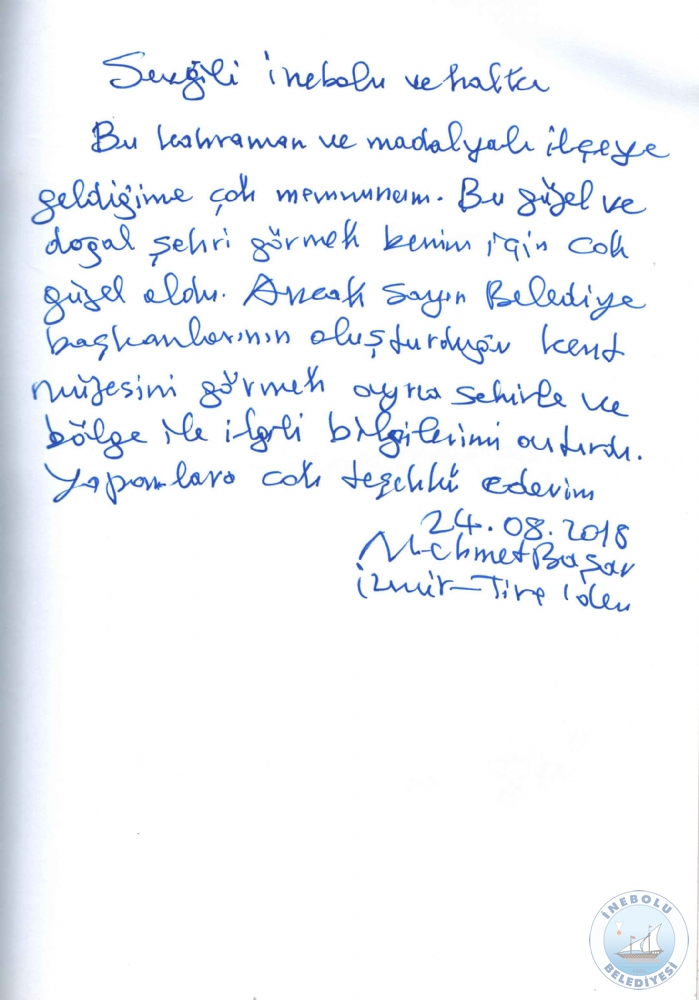 Sevgili İnebolu ve halkı
Bu kahraman ve madalyalı ilçeye
geldiğime çok memnunum. Bu güzel ve
doğal şehri görmek benim için cok
güzel oldu. Ancak Sayın Belediye
başkanlarının oluşturduğu kent
müzesini görmek ayrıca sehirle ve
bölge ile ilgili bilgilerimi artırdı.
Yapanlara cok teşekkü ederim
24.08.2018
Mehmet Başar
İzmir-Tire
İNEBOLU
BELEDİYESİ